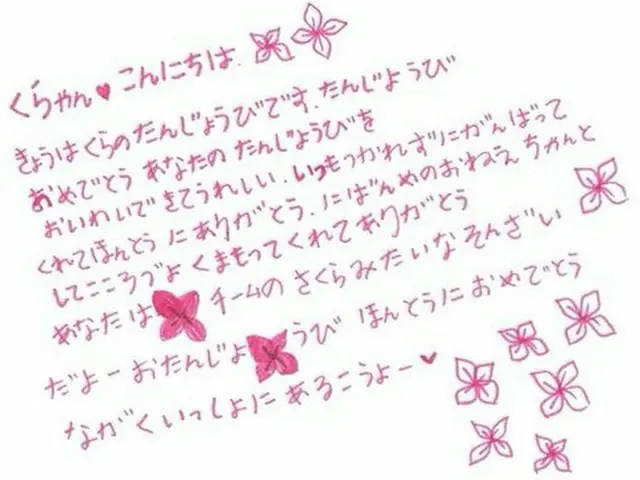 くらやん♥こんにちは.
きょうはくらのたんじょうびです.たんじょうび
おめでとう あなたの たんじょうびを
おいわいできてうれしい.いつもつかれずにがんばって
くれてほんとうにありがとう.にばんめのおねえちゃんと
してこころづよくまもってくれてありがとう
あなたは チームの さくらみたいなそんざい
だよーおたんじょうび ほんとうにおめでとう
ながくいっしょにあるこうよー♥